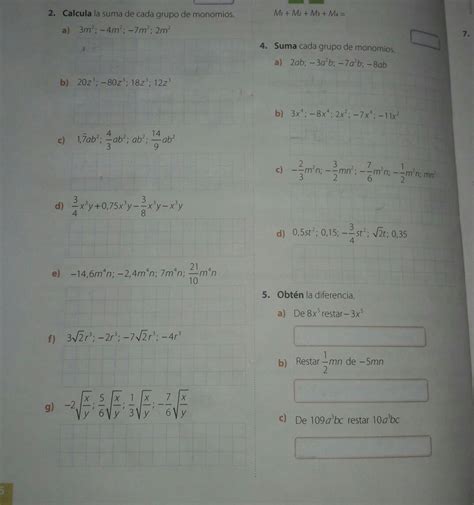 2. Calcula la suma de cada grupo de monomios.
a) 3m²; −4m²; −7m²; 2m²
b) 20z³; −80z³; 18z³; 12z³
c) 1,7ab²; 4/3 ab²; ab²; 14/9 ab²
d) 3/4 x³y+0,75x³y−3/8 x³y−x³y
e) −14,6m⁴n; −2,4m⁴n; 7m⁴n; 21/10 m⁴n
f) 3√2r³; −2r³; −7√2r³; −4r³
g) −2√(x/y); 5/6 √(x/y); 1/3 √(x/y); −7/6 √(x/y)
M₁ + M₂ + M₃ + M₄ =
4. Suma cada grupo de monomios.
a) 2ab; −3a²b; −7a²b; −8ab
b) 3x⁴; −8x⁴; 2x²; −7x⁴; −11x²
c) −2/3 m²n; −3/2 mn²; −7/6 m²n; −1/2 m²n; mn²
d) 0,5st²; 0,15; −3/4 st²; √2t; 0,35
5. Obtén la diferencia.
a) De 8x⁵ restar −3x⁵
b) Restar 1/2 mn de −5mn
c) De 109a³bc restar 10a³bc
7.